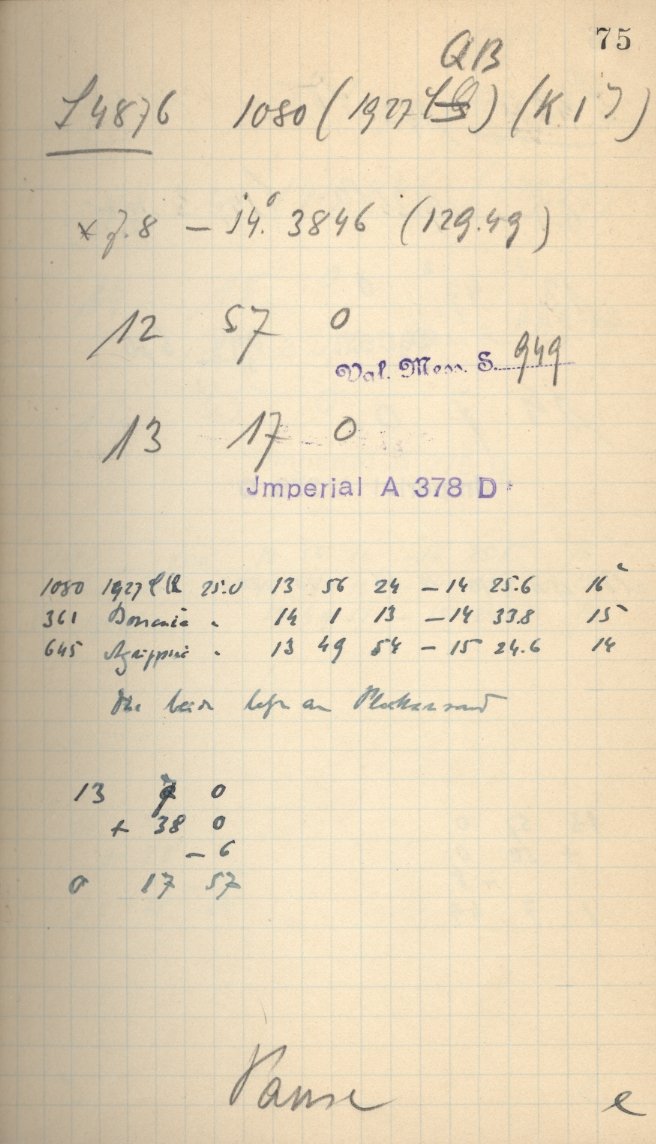 75
QB
J4876 1080 (1927 ) (K 17)
* 7.8 – 14.° 3846 (129.49)
12 57 0
Val. Mess. S. 949
13 17 0
Jmperial A 378 D
1080 1927 QB 25.0 13 56 24 – 14 25.6 16
361 Bononia " 14 1 13 – 14 33.8 15
645 Agrippina " 13 49 54 – 15 24.6 14
am Plattenrand
13 7 0
+ 38 0
– 6
0 17 57
Pause
e